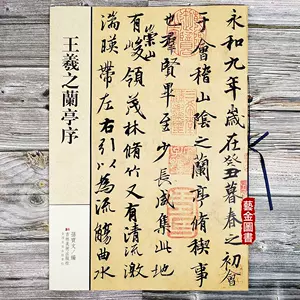 永和九年歲在癸丑暮春之初會
于會稽山陰之蘭亭脩稧事
也群賢畢至少長咸集此地
有崇山峻領茂林脩竹又有清流激
湍暎帶左右引以為流觴曲水
王羲之蘭亭序
孫寶文/編
藝金圖書